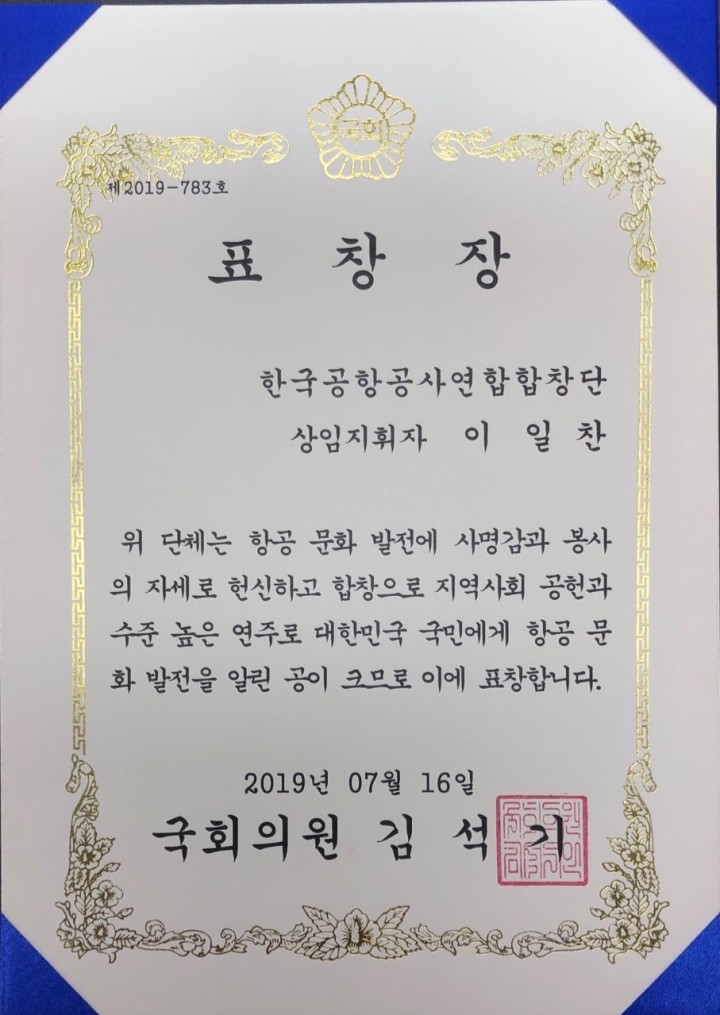 국회
제2019-783호
표 창 장
한국공항공사연합합창단
상임지휘자 이 일 찬
위 단체는 항공 문화 발전에 사명감과 봉사
의 자세로 헌신하고 합창으로 지역사회 공헌과
수준 높은 연주로 대한민국 국민에게 항공 문
화 발전을 알린 공이 크므로 이에 표창합니다.
2019년 07월 16일
국회의원 김 석 기